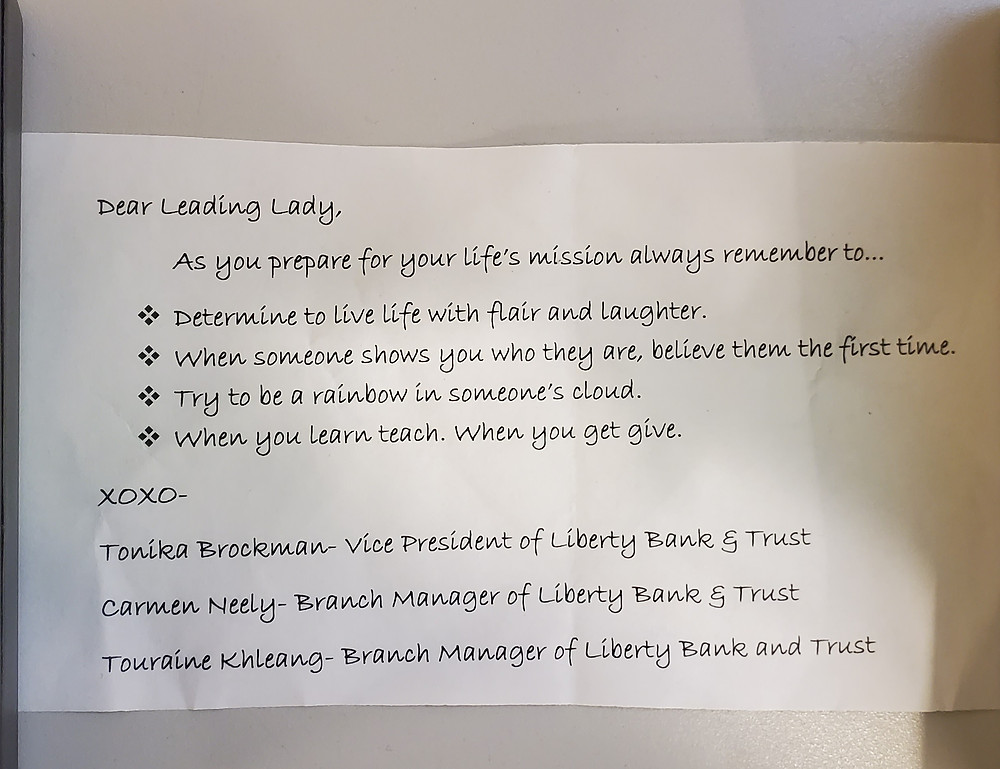 Dear Leading Lady,
As you prepare for your life's mission always remember to...
❖ Determine to live life with flair and laughter.
❖ When someone shows you who they are, believe them the first time.
❖ Try to be a rainbow in someone's cloud.
❖ When you learn teach. When you get give.
XOXO-
Tonika Brockman- Vice President of Liberty Bank & Trust
Carmen Neely- Branch Manager of Liberty Bank & Trust
Touraine Khleang- Branch Manager of Liberty Bank and Trust